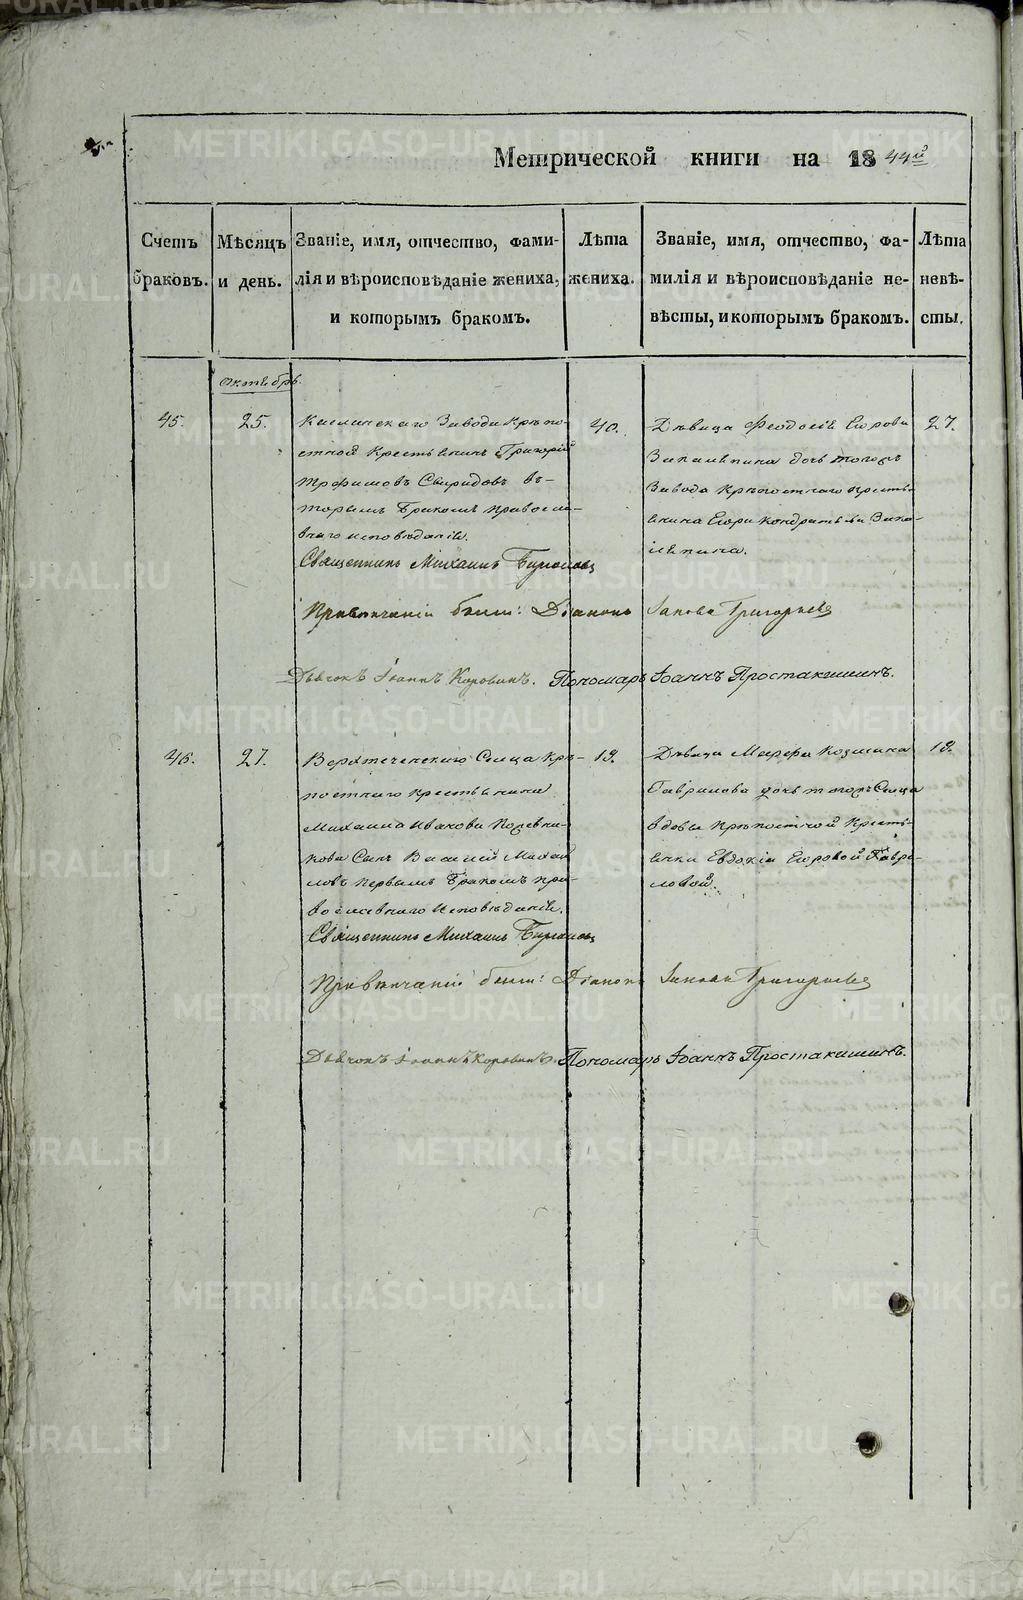 Метрической книги на 1844й
Счетъ браковъ.
Мѣсяцъ и день.
Званіе, имя, отчество, фами-
лія и вѣроисповѣданіе жениха,
и которымъ бракомъ.
Лѣта
жениха.
Званіе, имя, отчество, фа-
милія и вѣроисповѣданіе не-
вѣсты, и которымъ бракомъ.
Лѣта
невѣ-
сты.
Октябрь.
45.
25.
Каслинскаго Завода крѣпо-
стной крестьянинъ Григорій
Трофимовъ Свиридовъ в-
торымъ бракомъ правосла-
внаго исповѣданія.
40.
Дѣвица Феодосія Егорова
дочь тогожъ
завода крѣпостнаго кресть-
янина Егора Кондратьева
27.
Священникъ Михаилъ
При вѣнчаніи были: Діаконъ Іаковъ Григорьевъ
Дьячокъ Іоаннъ Коровинъ. Пономарь Іоаннъ Простакишинъ.
46.
27.
Села крѣ-
постнаго крестьянина
Михаила Иванова
сынъ Василій Михай-
ловъ первымъ бракомъ пра-
вославнаго исповѣданія.
19.
Дѣвица Марфа Козмина
Гаврилова дочь тогожъ Села
вдовы крѣпостной кресть-
янки Евдокіи Егоровой Гаври-
ловой.
18.
Священникъ Михаилъ
При вѣнчаніи были: Діаконъ Іаковъ Григорьевъ
Дьячокъ Іоаннъ Коровинъ. Пономарь Іоаннъ Простакишинъ.
METRIKI.GASO-URAL.RU